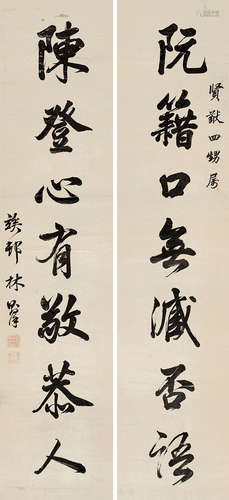 賢猷四甥屬
阮籍口無臧否語
陳登心有敬恭人
竢邨林則徐